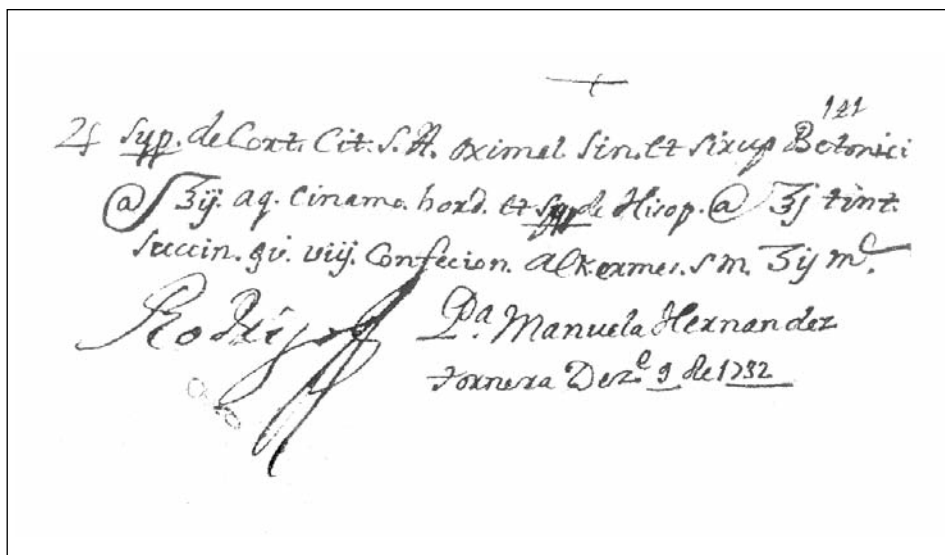 121
Syp. de Cort. Cit. S. A. oximel sin. et sirup Betonici
@ ʒij. aq. Cinamo. hord. et syp de Hisop. @ ʒj tint.
Succin. gv. viij. Confecion. Alkermes. s m. ʒij m.
Rodrig
Pª. Manuela Hernandez
tornera Dezᵉ 9 de 1732